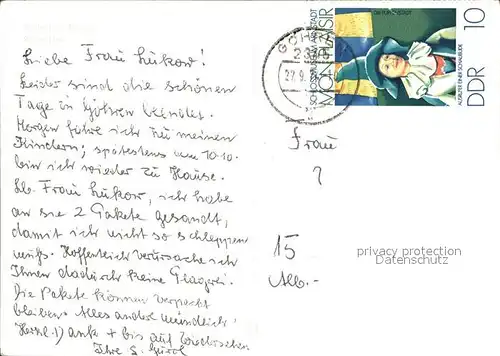 Liebe Frau Lukow!
Leider sind die schönen
Tage in Göhren beendet.
Morgen fahre ich zu meinen
Kindern; spätestens am 10.10.
bin ich wieder zu Hause.
Lb. Frau Lukow, ich habe
an sie 2 Pakete gesandt,
damit ich nicht so schleppen
muß. Hoffentlich verursache ich
Ihnen dadurch keine
Die Pakete können verpackt
bleiben. Alles andere mündlich.
Herzl. Dank + bis auf Wiedersehen
Ihre
Frau
?
15
Mb.-
MON PLAISIR
DDR
10
privacy protection
Datenschutz